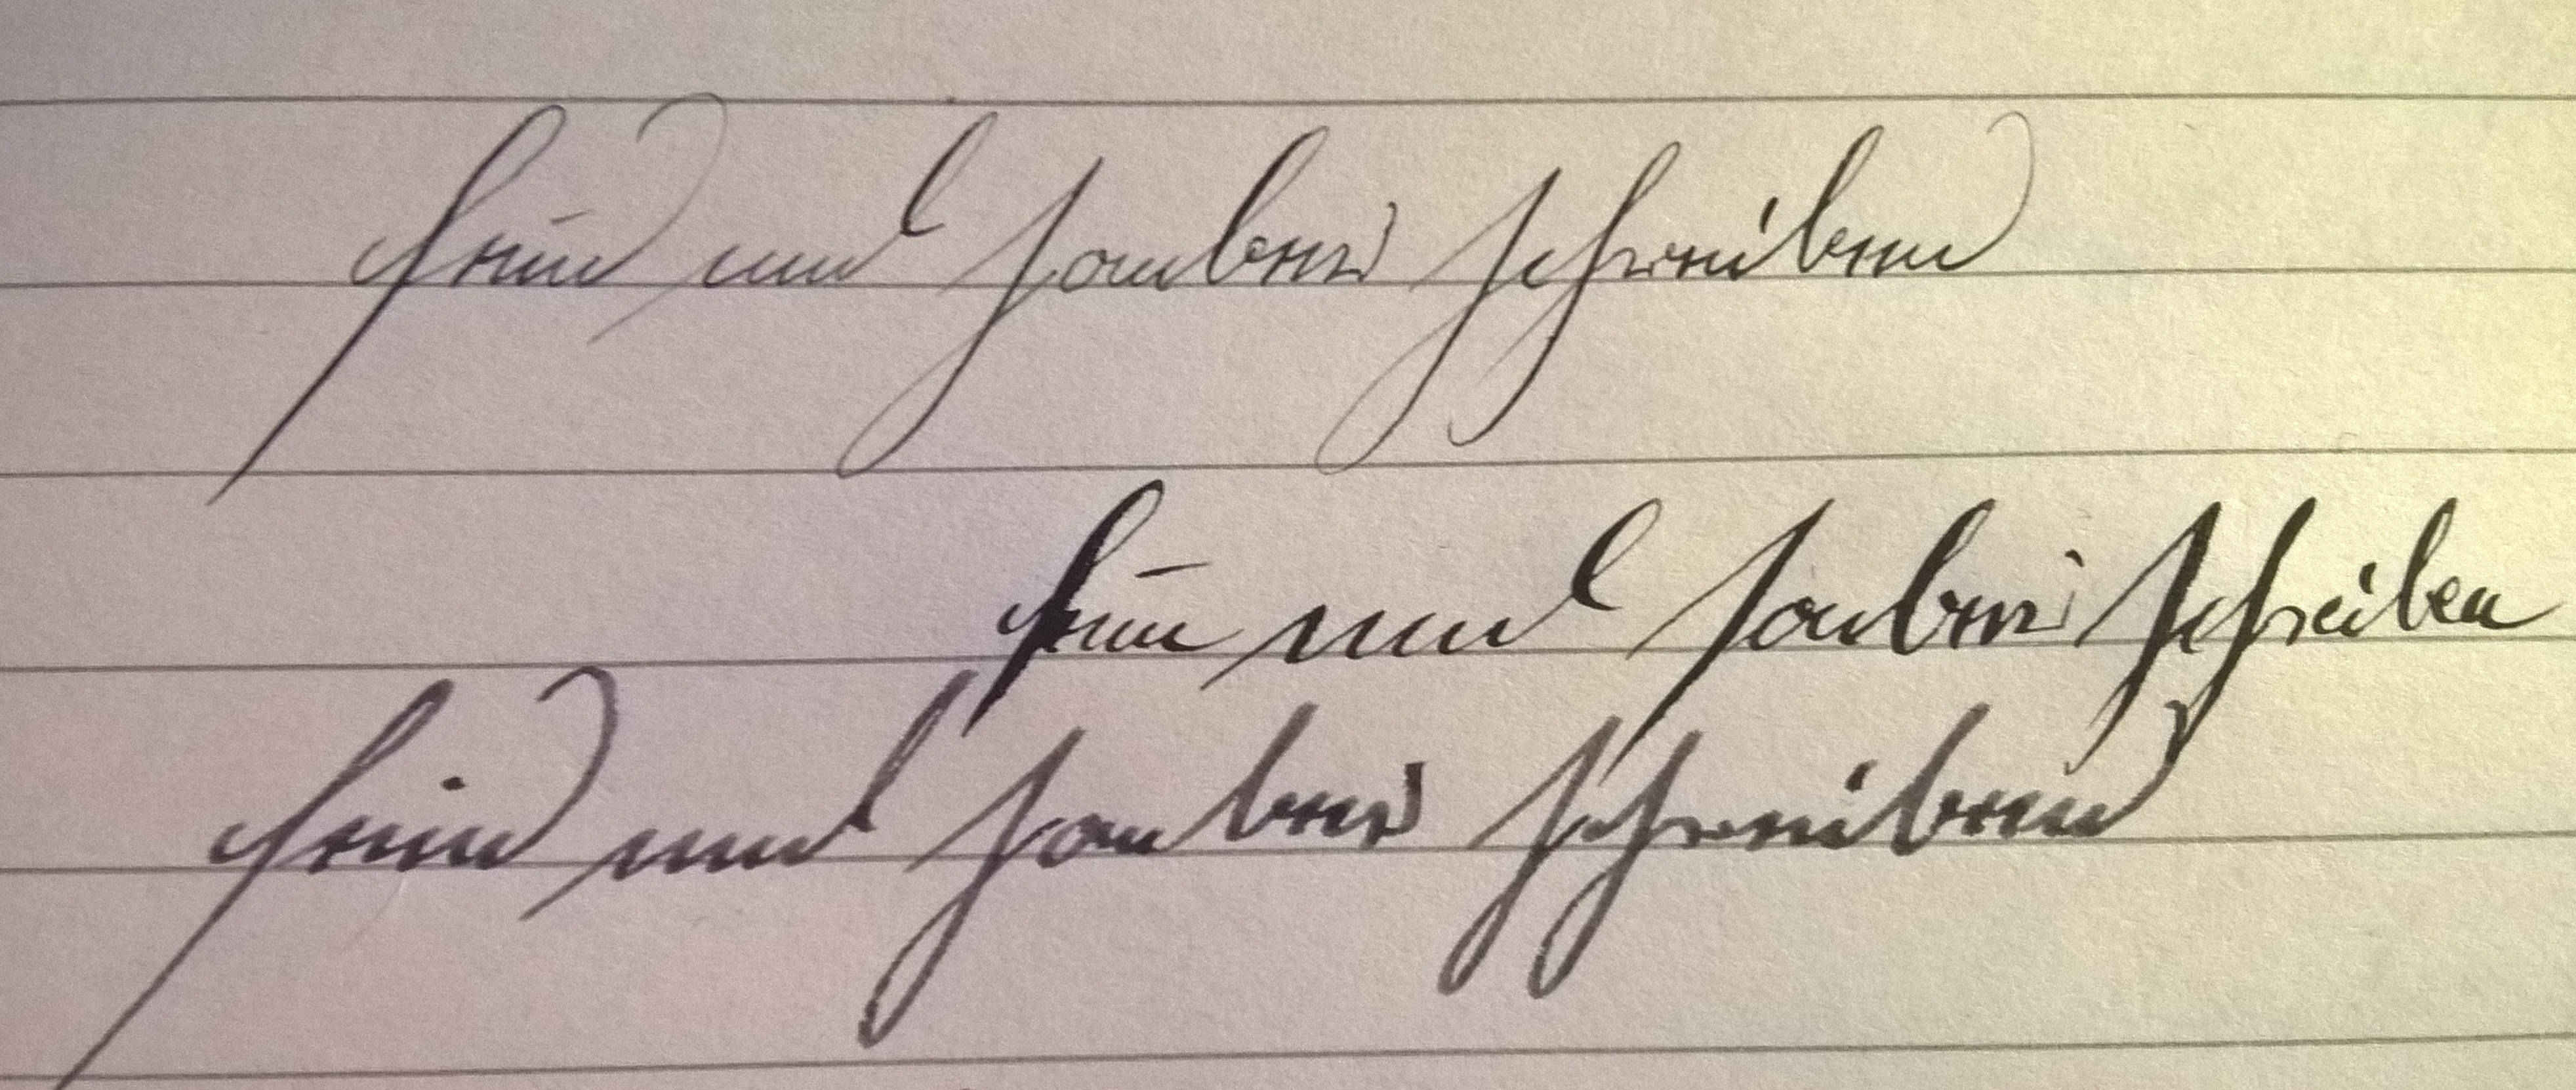 fein und sauber schreiben
fein und sauber schreiben
fein und sauber schreiben